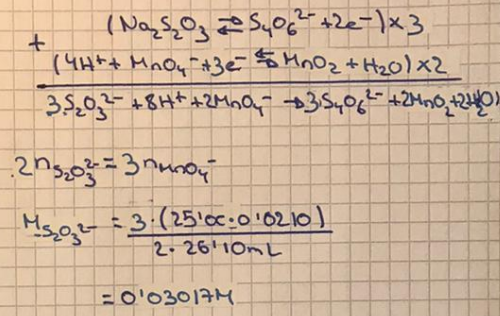 (Na₂S₂O₃ ⇄ S₄O₆²⁻ + 2e⁻) × 3
+
(4H⁺ + MnO₄⁻ + 3e⁻ ⇆ MnO₂ + H₂O) × 2
3S₂O₃²⁻ + 8H⁺ + 2MnO₄⁻ → 3S₄O₆²⁻ + 2MnO₂ + 2H₂O)
2n S₂O₃²⁻ = 3n MnO₄⁻
M S₂O₃²⁻ = 3·(25'00·0'0210)
2·26'10mL
= 0'03017M